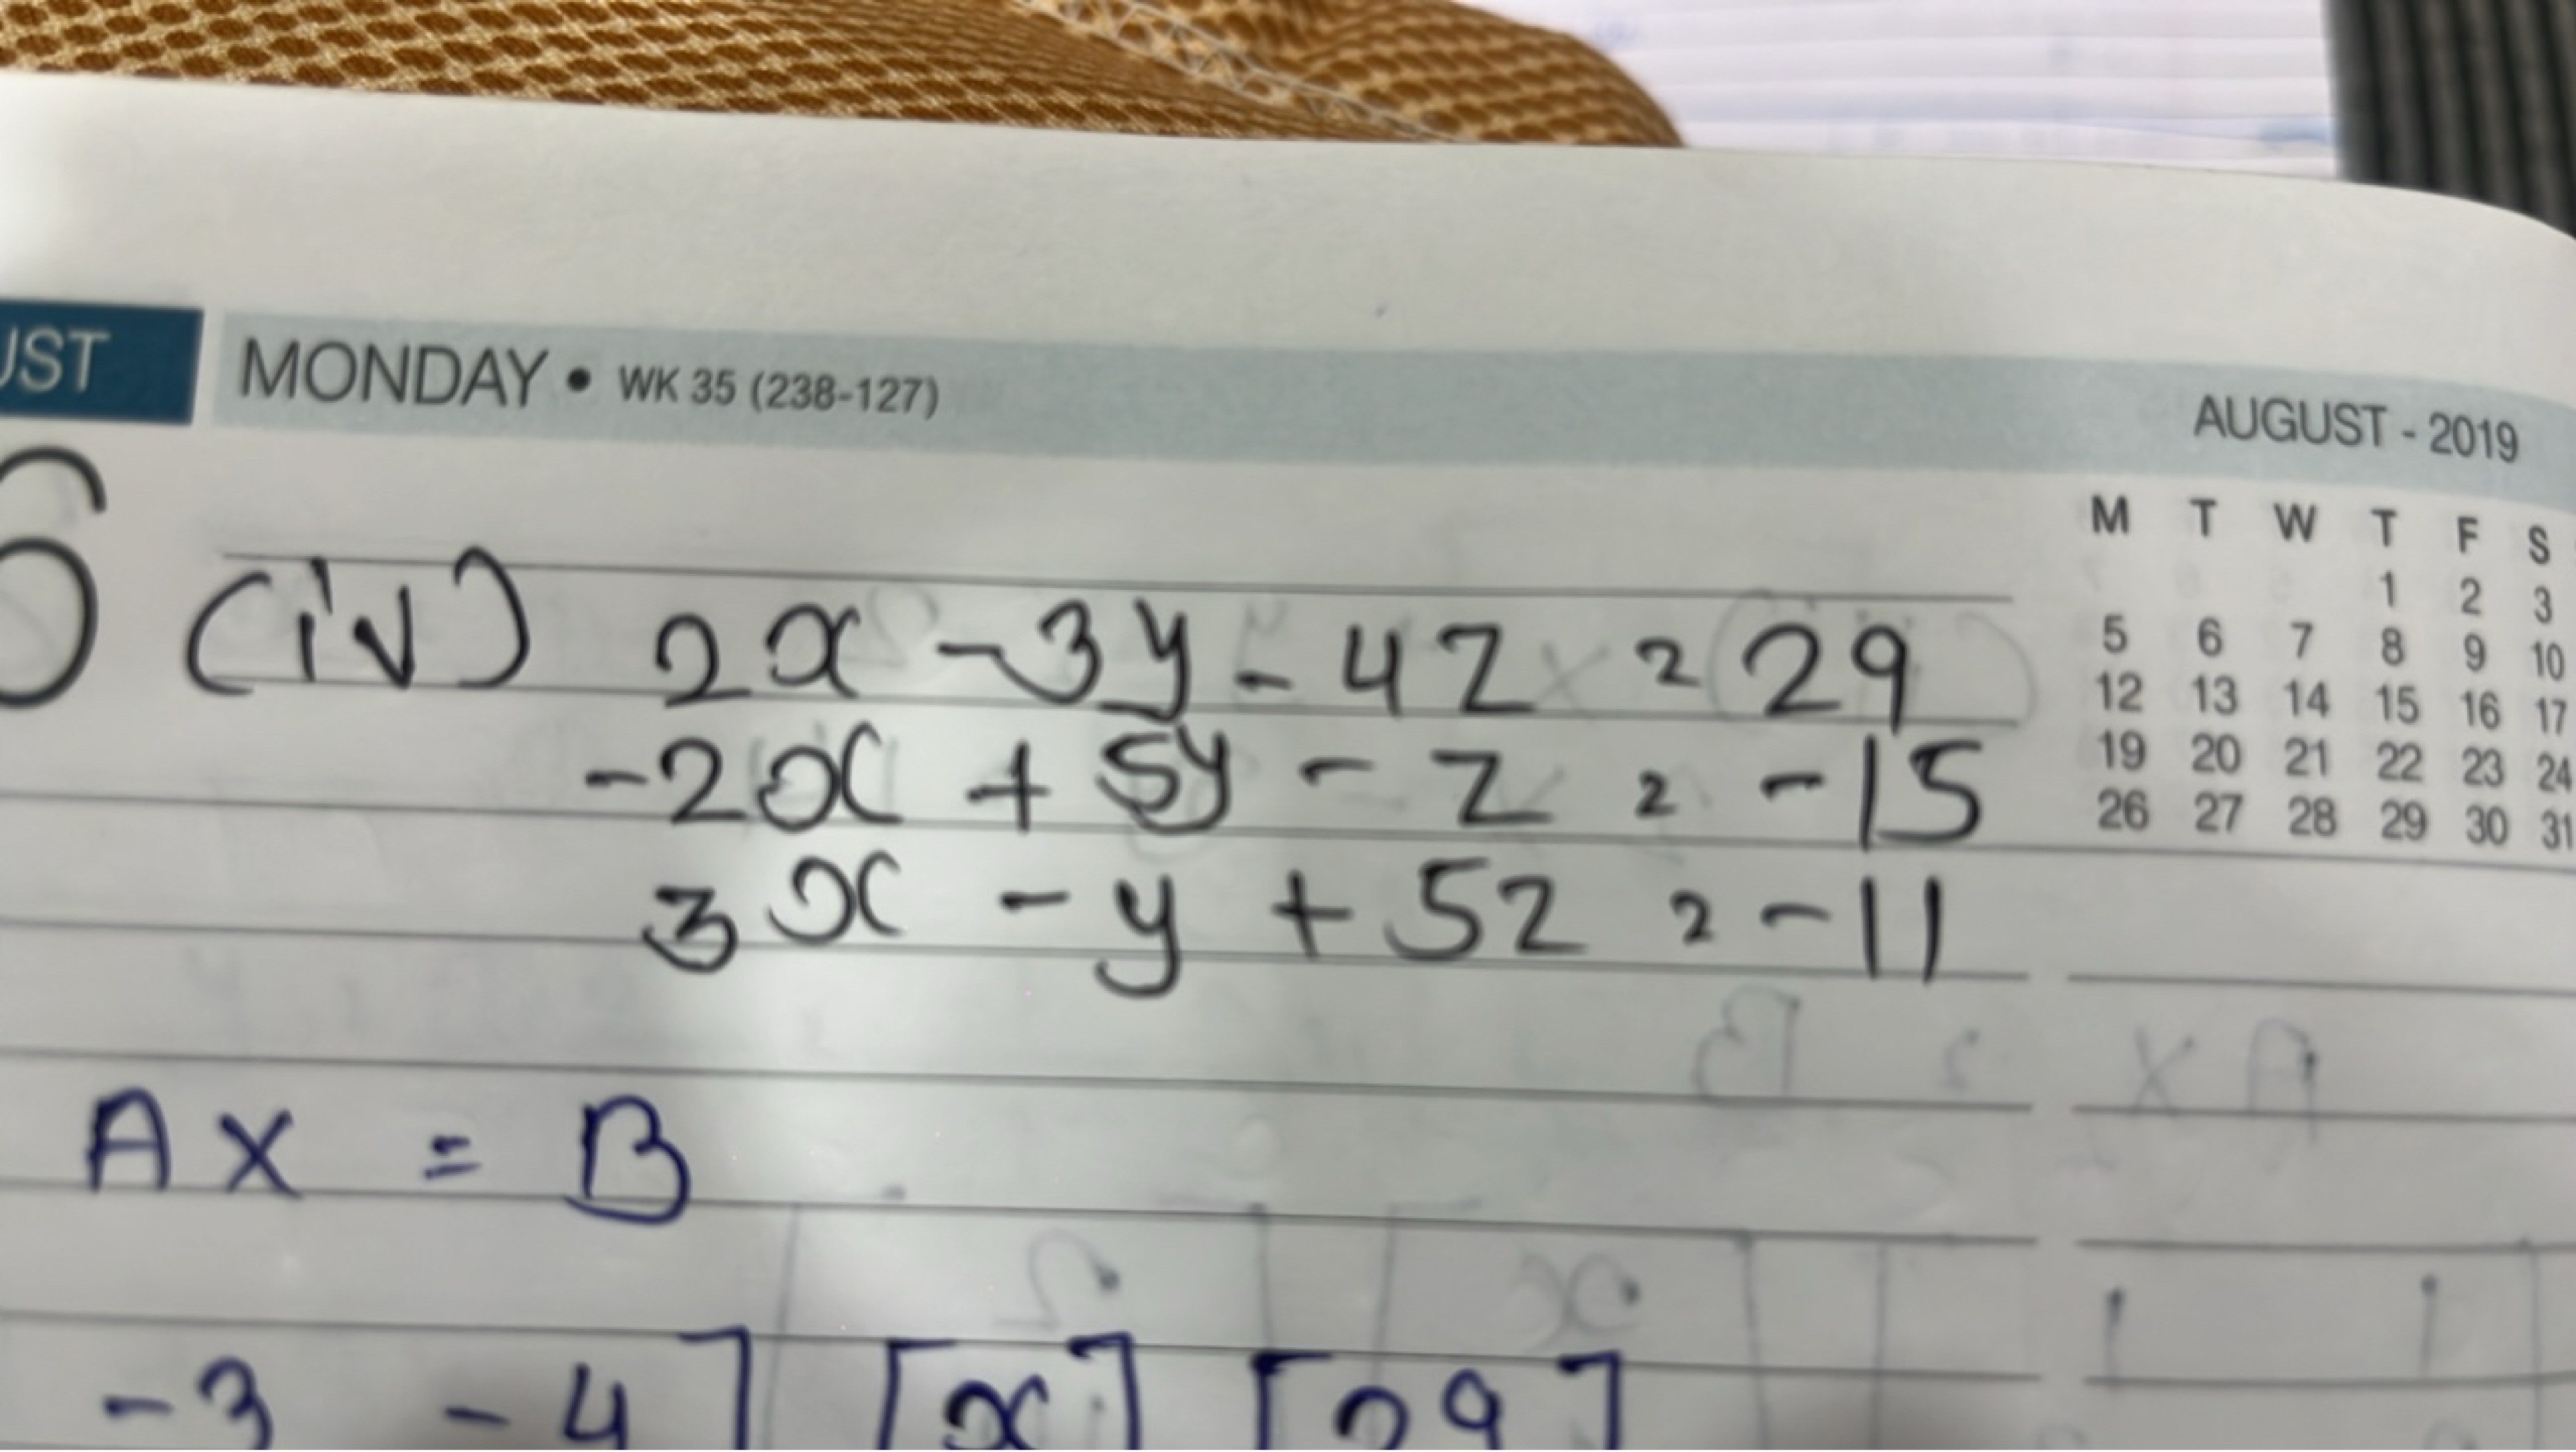 UST MONDAY • WK 35 (238-127)
AUGUST - 2019
M T W T F S
1 2 3
5 6 7 8 9 10
12 13 14 15 16 17
19 20 21 22 23 24
26 27 28 29 30 31
6 (iv) 2x - 3y - 4z = 29
-2x + 5y - z = -15
3x - y + 5z = -11
AX = B
-3 -4] [x] [29]